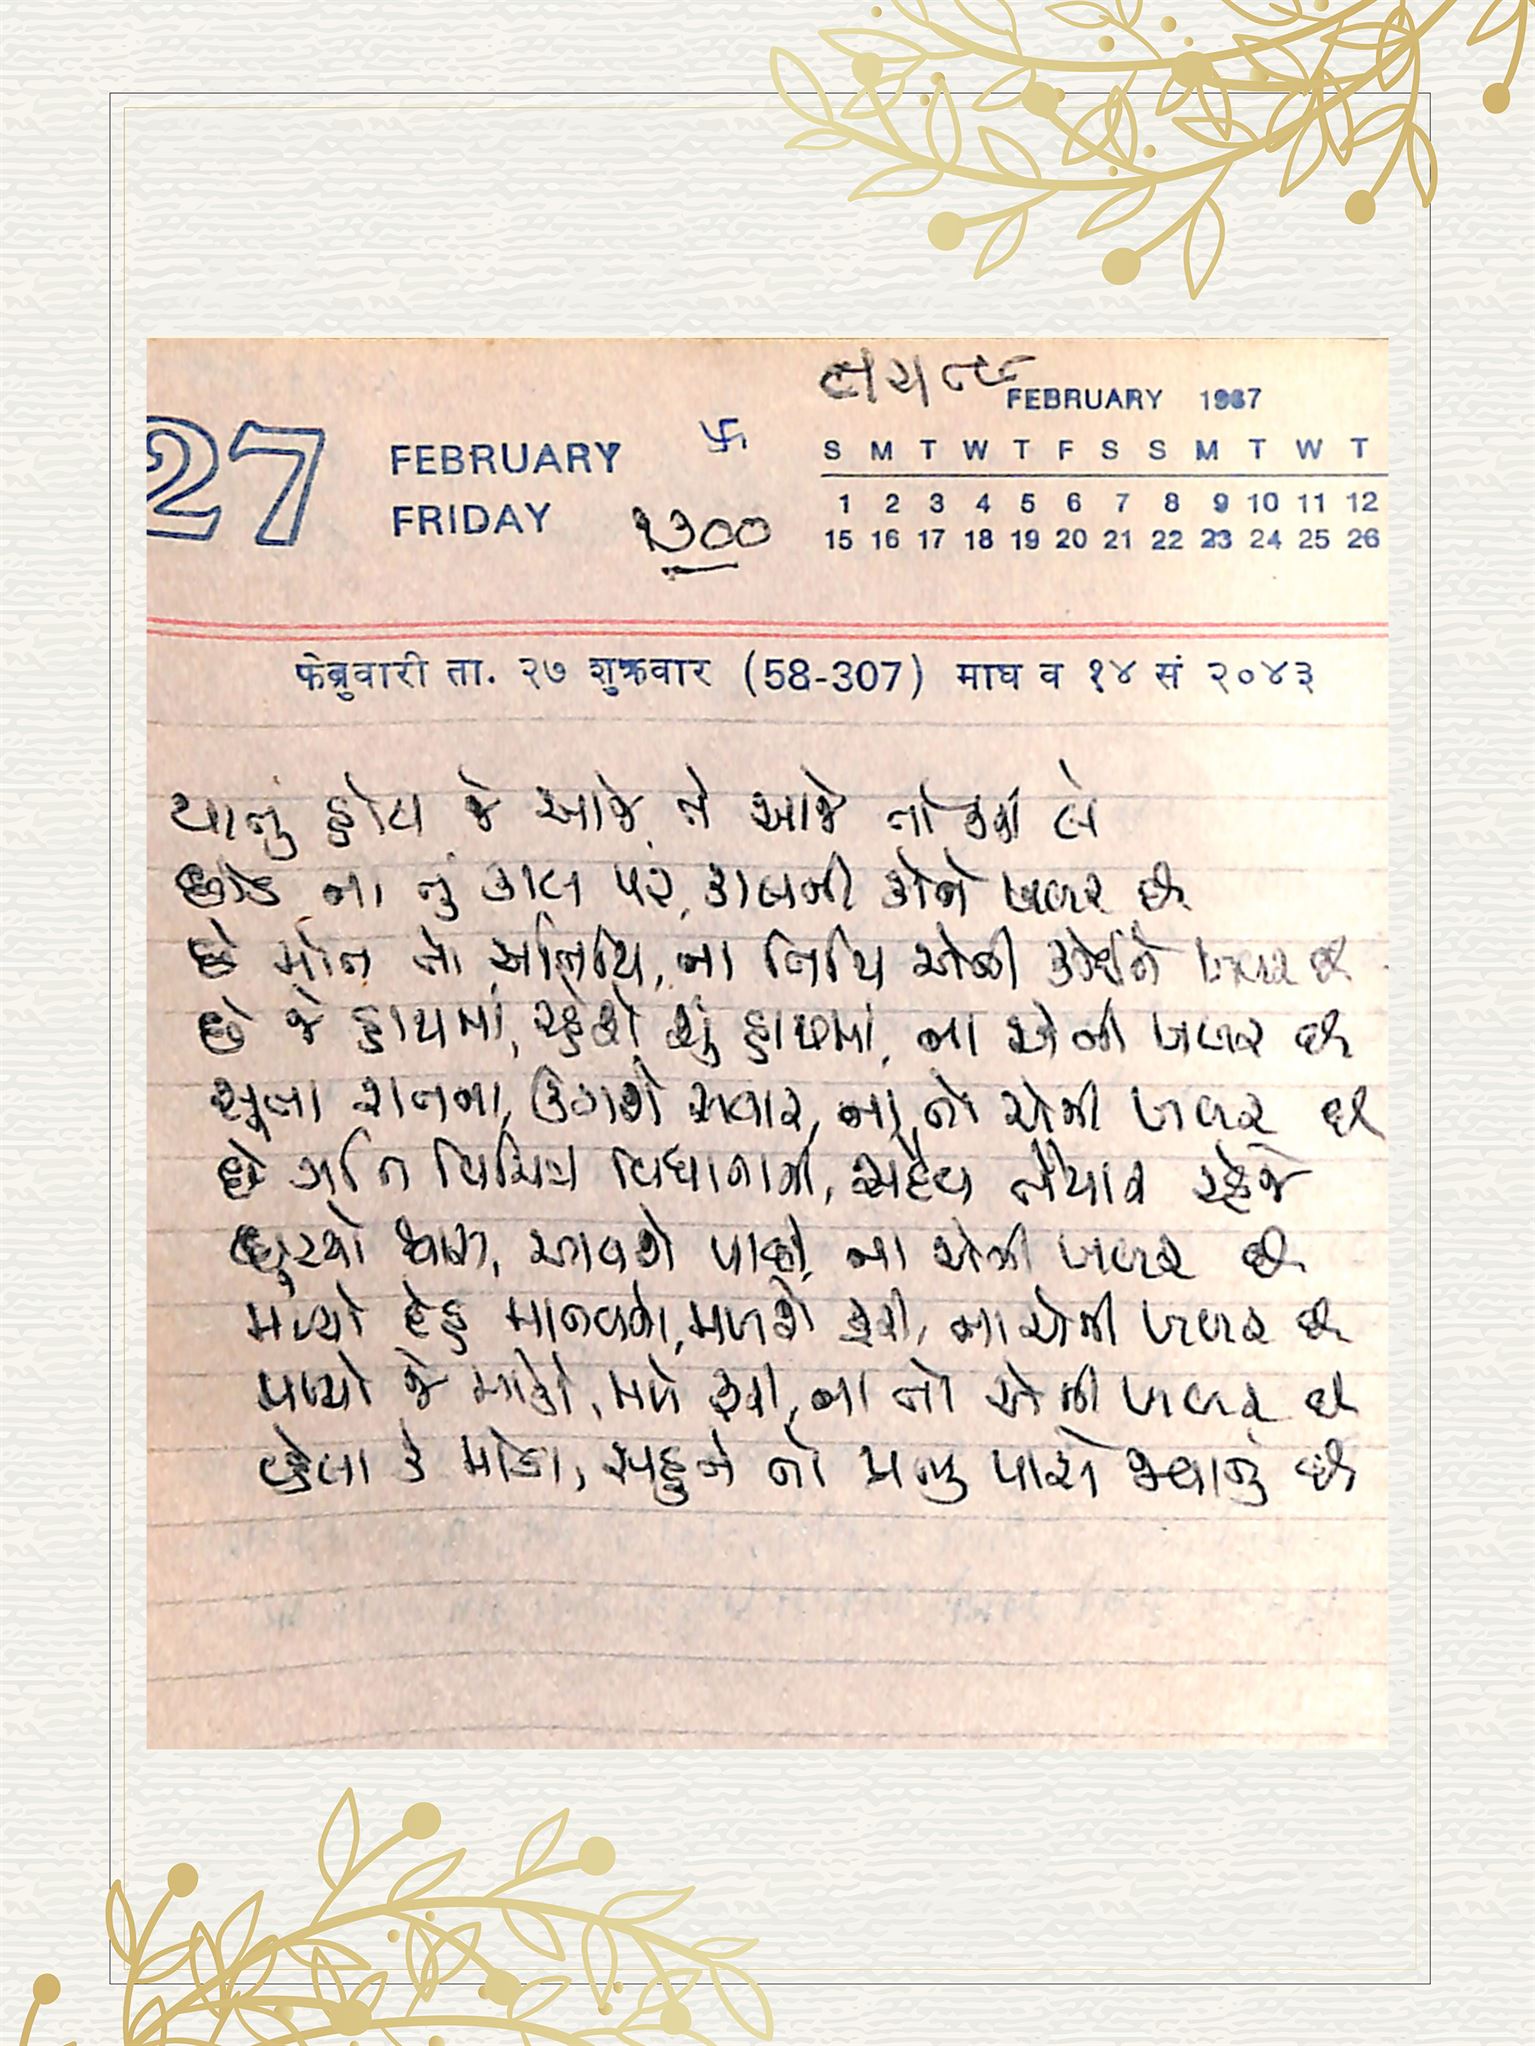 27
FEBRUARY
FRIDAY
卐
૧૩૦૦
FEBRUARY 1987
S M T W T F S S M T W T
1 2 3 4 5 6 7 8 9 10 11 12
15 16 17 18 19 20 21 22 23 24 25 26
फेब्रुवारी ता. २७ शुक्रवार (58-307) माघ व १४ सं २०४३
થાનું હોય જે આજે, ને આજે તો કરી લે
છોડ ના તું કાલ પર, કાલની કોને ખબર છે
છે મોત તો અતિથિ, ના તિથિ એની કોઈને ખબર છે
છે જે હાથમાં, રહેશે શું હાથમાં, ના એની ખબર છે
સૂતા રાતના, ઉગશે સવાર, ના તો એની ખબર છે
છે ગતિ વિચિત્ર વિધાતાની, સદૈવ તૈયાર રહેજે
છૂટયો શ્વાસ, આવશે પાછો, ના એની ખબર છે
મળ્યો દેહ માનવનો, મળશે ફરી, ના એની ખબર છે
મળ્યો જે મોકો, મળે ફરી, ના તો એની ખબર છે
વહેલા કે મોડા, સહુને તો પ્રભુ પાસે જવાનું છે